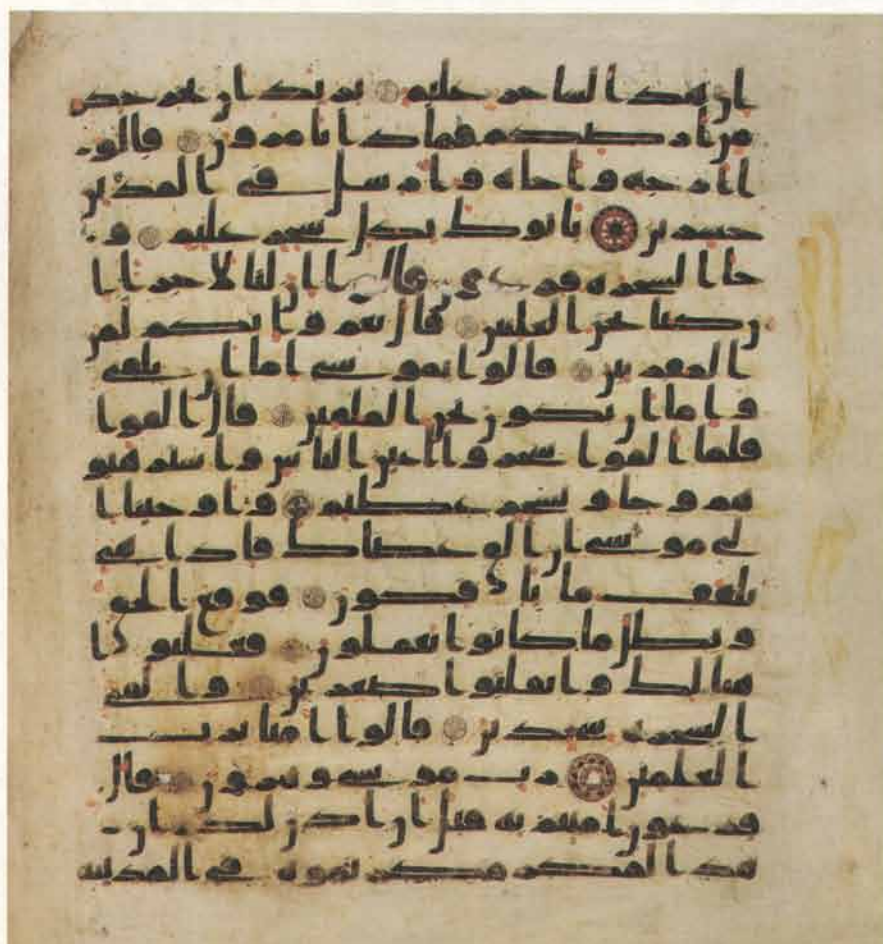 ان هذا لساحر عليم يريد ان يخرجكم
من ارضكم فماذا تامرون قالو
ا ارجه واخاه وارسل في المدين
حشرين ياتوك بكل سحر عليم و
جا السحره فرعون قالوا ان لنا لاجرا ا
ن كنا نحن الغلبين قال نعم وانكم لمن
المقربين قالوا يموسى اما ان تلقى
واما ان نكون نحن الملقين قال القوا
فلما القوا سحروا اعين الناس واسترهبو
هم وجاو بسحر عظيم واوحينا ا
لى موسى ان الق عصاك فاذا هى
تلقف ما يافكون فوقع الحق
وبطل ما كانوا يعملون فغلبوا
هنالك وانقلبوا صغرين والقى
السحره سجدين قالوا امنا برب
العلمين رب موسى وهرون قال
فرعون امنتم به قبل ان اذن لكم ان
هذا لمكر مكرتموه في المدينه